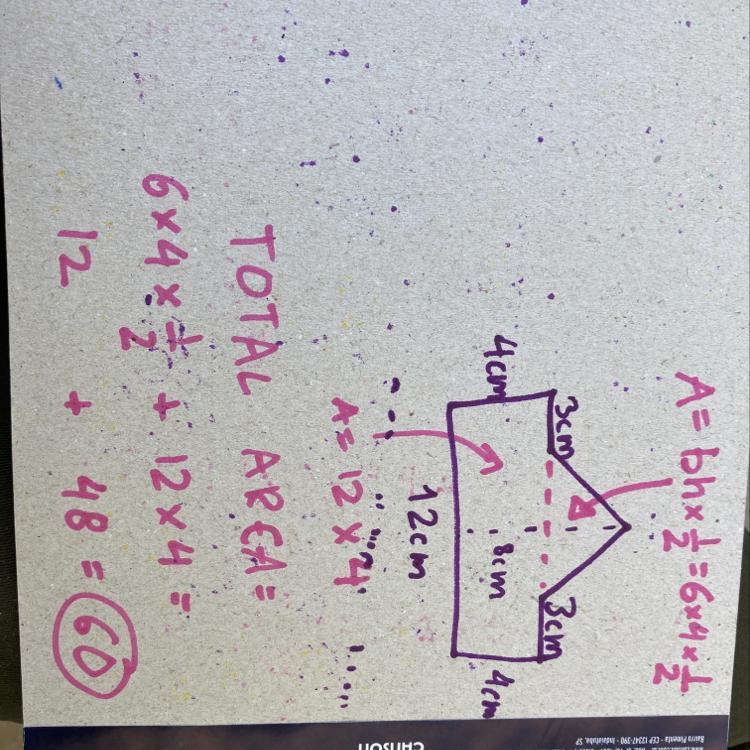 A = bh × 1/2 = 6 × 4 × 1/2
3cm 3cm
4cm 8cm 4cm
12cm
A = 12 × 4
TOTAL AREA =
6 × 4 × 1/2 + 12 × 4 =
12 + 48 = 60
CANSON
Bairro Pimenta - CEP 13347-390 - Indaiatuba, SP